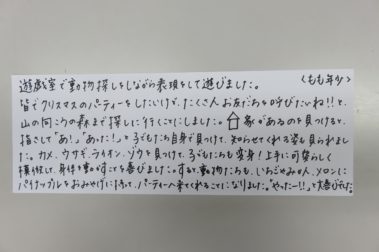 遊戯室で動物探しをしながら表現をして遊びました。　〈もも年少〉
皆でクリスマスのパーティーをしたいけど、たくさんお友だちを呼びたいね!!と、
山の向こうの森まで探しに行くことにしました。家があるのを見つけると、
指さして「あ!」「あった!」と子どもたち自身で見つけて、知らせてくれる姿も見られまし
た。カメ、ウサギ、ライオン、ゾウを見つけて、子どもたちも変身!上手に可愛らしく
模倣して、身体を動かすことを喜びました。すると、動物たちも、いちごやみかん、メロンに
パイナップルをおみやげに持って、パーティーへ来てくれることになりました。“やったー!!”と大喜びでした。